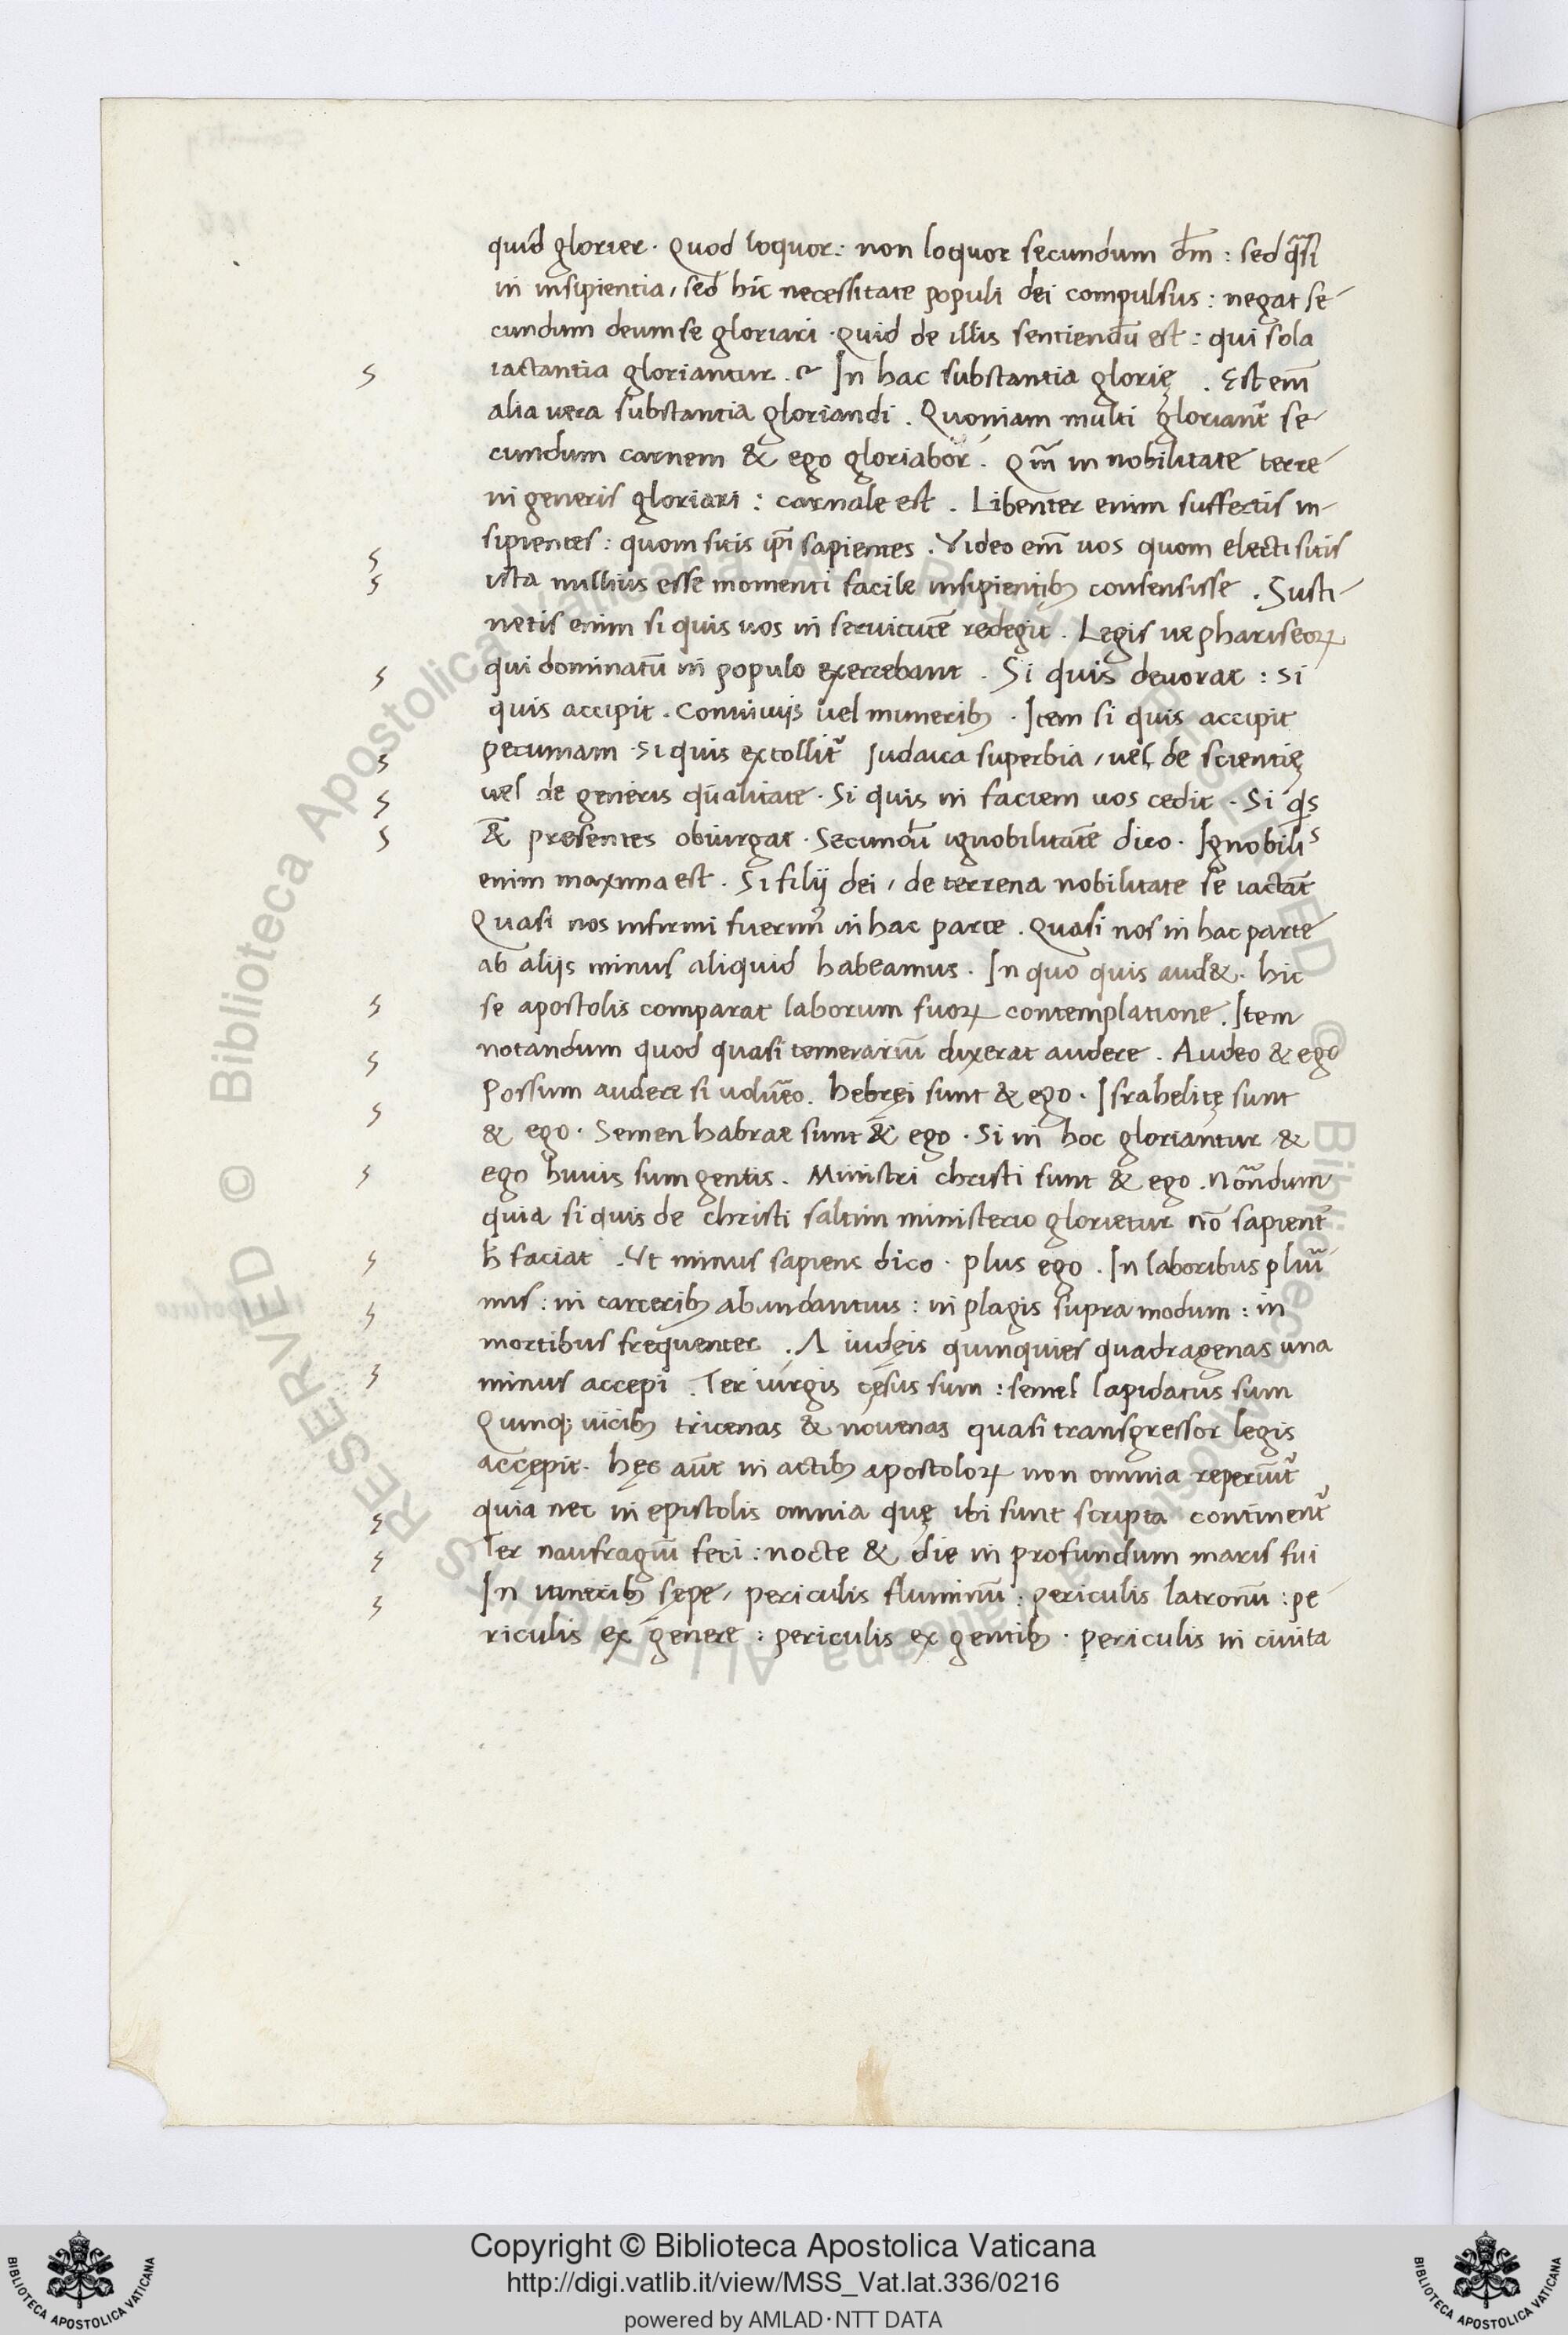 quid glorier. Quod loquor: non loquor secundum dm̄: sed q̄si
in insipientia, sed hic necessitate populi dei compulsus: negat se-
cundum deum se gloriari. Quid de illis sentiendū est: qui sola
iactantia gloriantur. In hac substantia glorię. Est em̄
alia uera substantia gloriandi. Quoniam multi gloriant᷑ se-
cundum carnem & ego gloriabor. Qm̄ in nobilitate terre-
ni generis gloriari: carnale est. Libenter enim suffertis in-
sipientes: quom sitis ip̄i sapientes. Video em̄ uos quom electi sitis
ista nullius esse momenti facile insipientibꝫ consensisse. Susti-
netis enim si quis uos in seruitutē redegit. Legis ue phariseoꝝ
qui dominatū in populo exercebant. Si quis deuorat: si
quis accipit. Conuiuijs uel muneribꝫ. Item si quis accipit
pecuniam. Si quis extollit᷑ Iudaica superbia, uel de scientię
uel de generis qualitate. Si quis in faciem uos cedit. Si qs
&̄ presentes obiurgat. Secundū ignobilitatē dico. Ignobilis
enim maxima est. Si filij dei, de terrena nobilitate se iactāt
Quasi nos infirmi fuerim᷒ in hac parte. Quasi nos in hac parte
ab aliis minus aliquid habeamus. In quo quis aud&. hic
se apostolis comparat laborum suoꝝ contemplatione. Item
notandum quod quasi temerariū dixerat audere. Audeo & ego
Possum audere si voluēo. Hebręi sunt & ego. Israhelitę sunt
& ego. Semen habrae sunt & ego. Si in hoc gloriantur &
ego huius sum gentis. Ministri christi sunt & ego. Notandum
quia si quis de christi saltim ministerio glorietur nō sapient᷑
h̄ faciat. Ut minus sapiens dico. plus ego. In laboribus pluri-
mis: in carceribꝫ abundantius: in plagis supra modum: in
mortibus frequenter. A iudęis quinquies quadragenas una
minus accepi. Ter uirgis cęsus sum: semel lapidatus sum
Quinqꝫ uicibꝫ tricenas & nouenas quasi transgressor legis
accępit. Hęc aūt in actibꝫ apostoloꝝ non omnia reperiūt᷑
quia nec in epistolis omnia quę ibi sunt scripta continent᷑
Ter naufragiū feci: nocte & die in profundum maris fui
In itineribꝫ sępe, periculis fluminū: periculis latronū: pe-
riculis ex genere: periculis ex gentibꝫ. periculis in ciuita
Copyright © Biblioteca Apostolica Vaticana
http://digi.vatlib.it/view/MSS_Vat.lat.336/0216
powered by AMLAD·NTT DATA